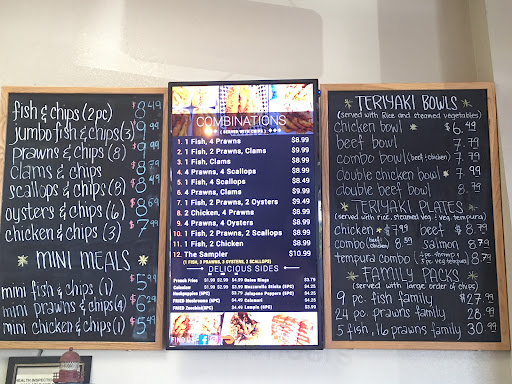 fish & chips (2pc) $8.49
jumbo fish & chips (3) $9.99
prawns & chips (8) $9.99
clams & chips $8.79
scallops & chips (8) $8.49
oysters & chips (6) $8.99
chicken & chips (3) $7.99
MINI MEALS
mini fish & chips (1) $5.99
mini prawns & chips (4) $6.29
mini chicken & chips (1) $5.49
COMBINATIONS
( SERVED WITH CHIPS )
1. 1 Fish, 4 Prawns $8.99
2. 1 Fish, 2 Prawns, Clams $9.99
3. 1 Fish, Clams $8.99
4. 4 Prawns, 4 Scallops $8.99
5. 1 Fish, 4 Scallops $8.49
6. 4 Prawns, Clams $8.99
7. 1 Fish, 2 Prawns, 2 Oysters $9.49
8. 2 Chicken, 4 Prawns $8.99
9. 4 Prawns, 4 Oysters $8.99
10. 1 Fish, 2 Prawns, 2 Scallops $8.99
11. 1 Fish, 2 Chicken $8.99
12. The Sampler $10.99
(1 FISH, 2 PRAWNS, 2 OYSTERS, 2 SCALLOPS)
DELICIOUS SIDES
French Fries $1.99 $2.99 Onion Rings $3.79
Coleslaw $1.99 $2.99 Mozzarella Sticks (6PC) $4.25
Hushpuppies (6PC) $3.79 Jalapeno Poppers (6PC) $4.25
FRIED Mushrooms (9PC) $4.49 Calamari $4.25
FRIED Zucchini(6PC) $4.49 Lumpia (6PC) $3.99
FIND US
TERIYAKI BOWLS
(served with Rice and steamed vegetables)
chicken bowl $6.49
beef bowl 7.79
combo bowl (beef & chicken) 7.79
double chicken bowl 7.99
double beef bowl 8.79
TERIYAKI PLATES
(served with rice, steamed veg. & veg. tempura)
chicken $7.99 beef $8.79
combo (beef & chicken) 8.89 salmon 8.79
tempura combo 8.79
FAMILY PACKS
(served with large order of chips)
9 pc. fish family $27.99
24 pc. prawns family 26.99
5 fish, 16 prawns family 30.99
HEALTH INSPECTION